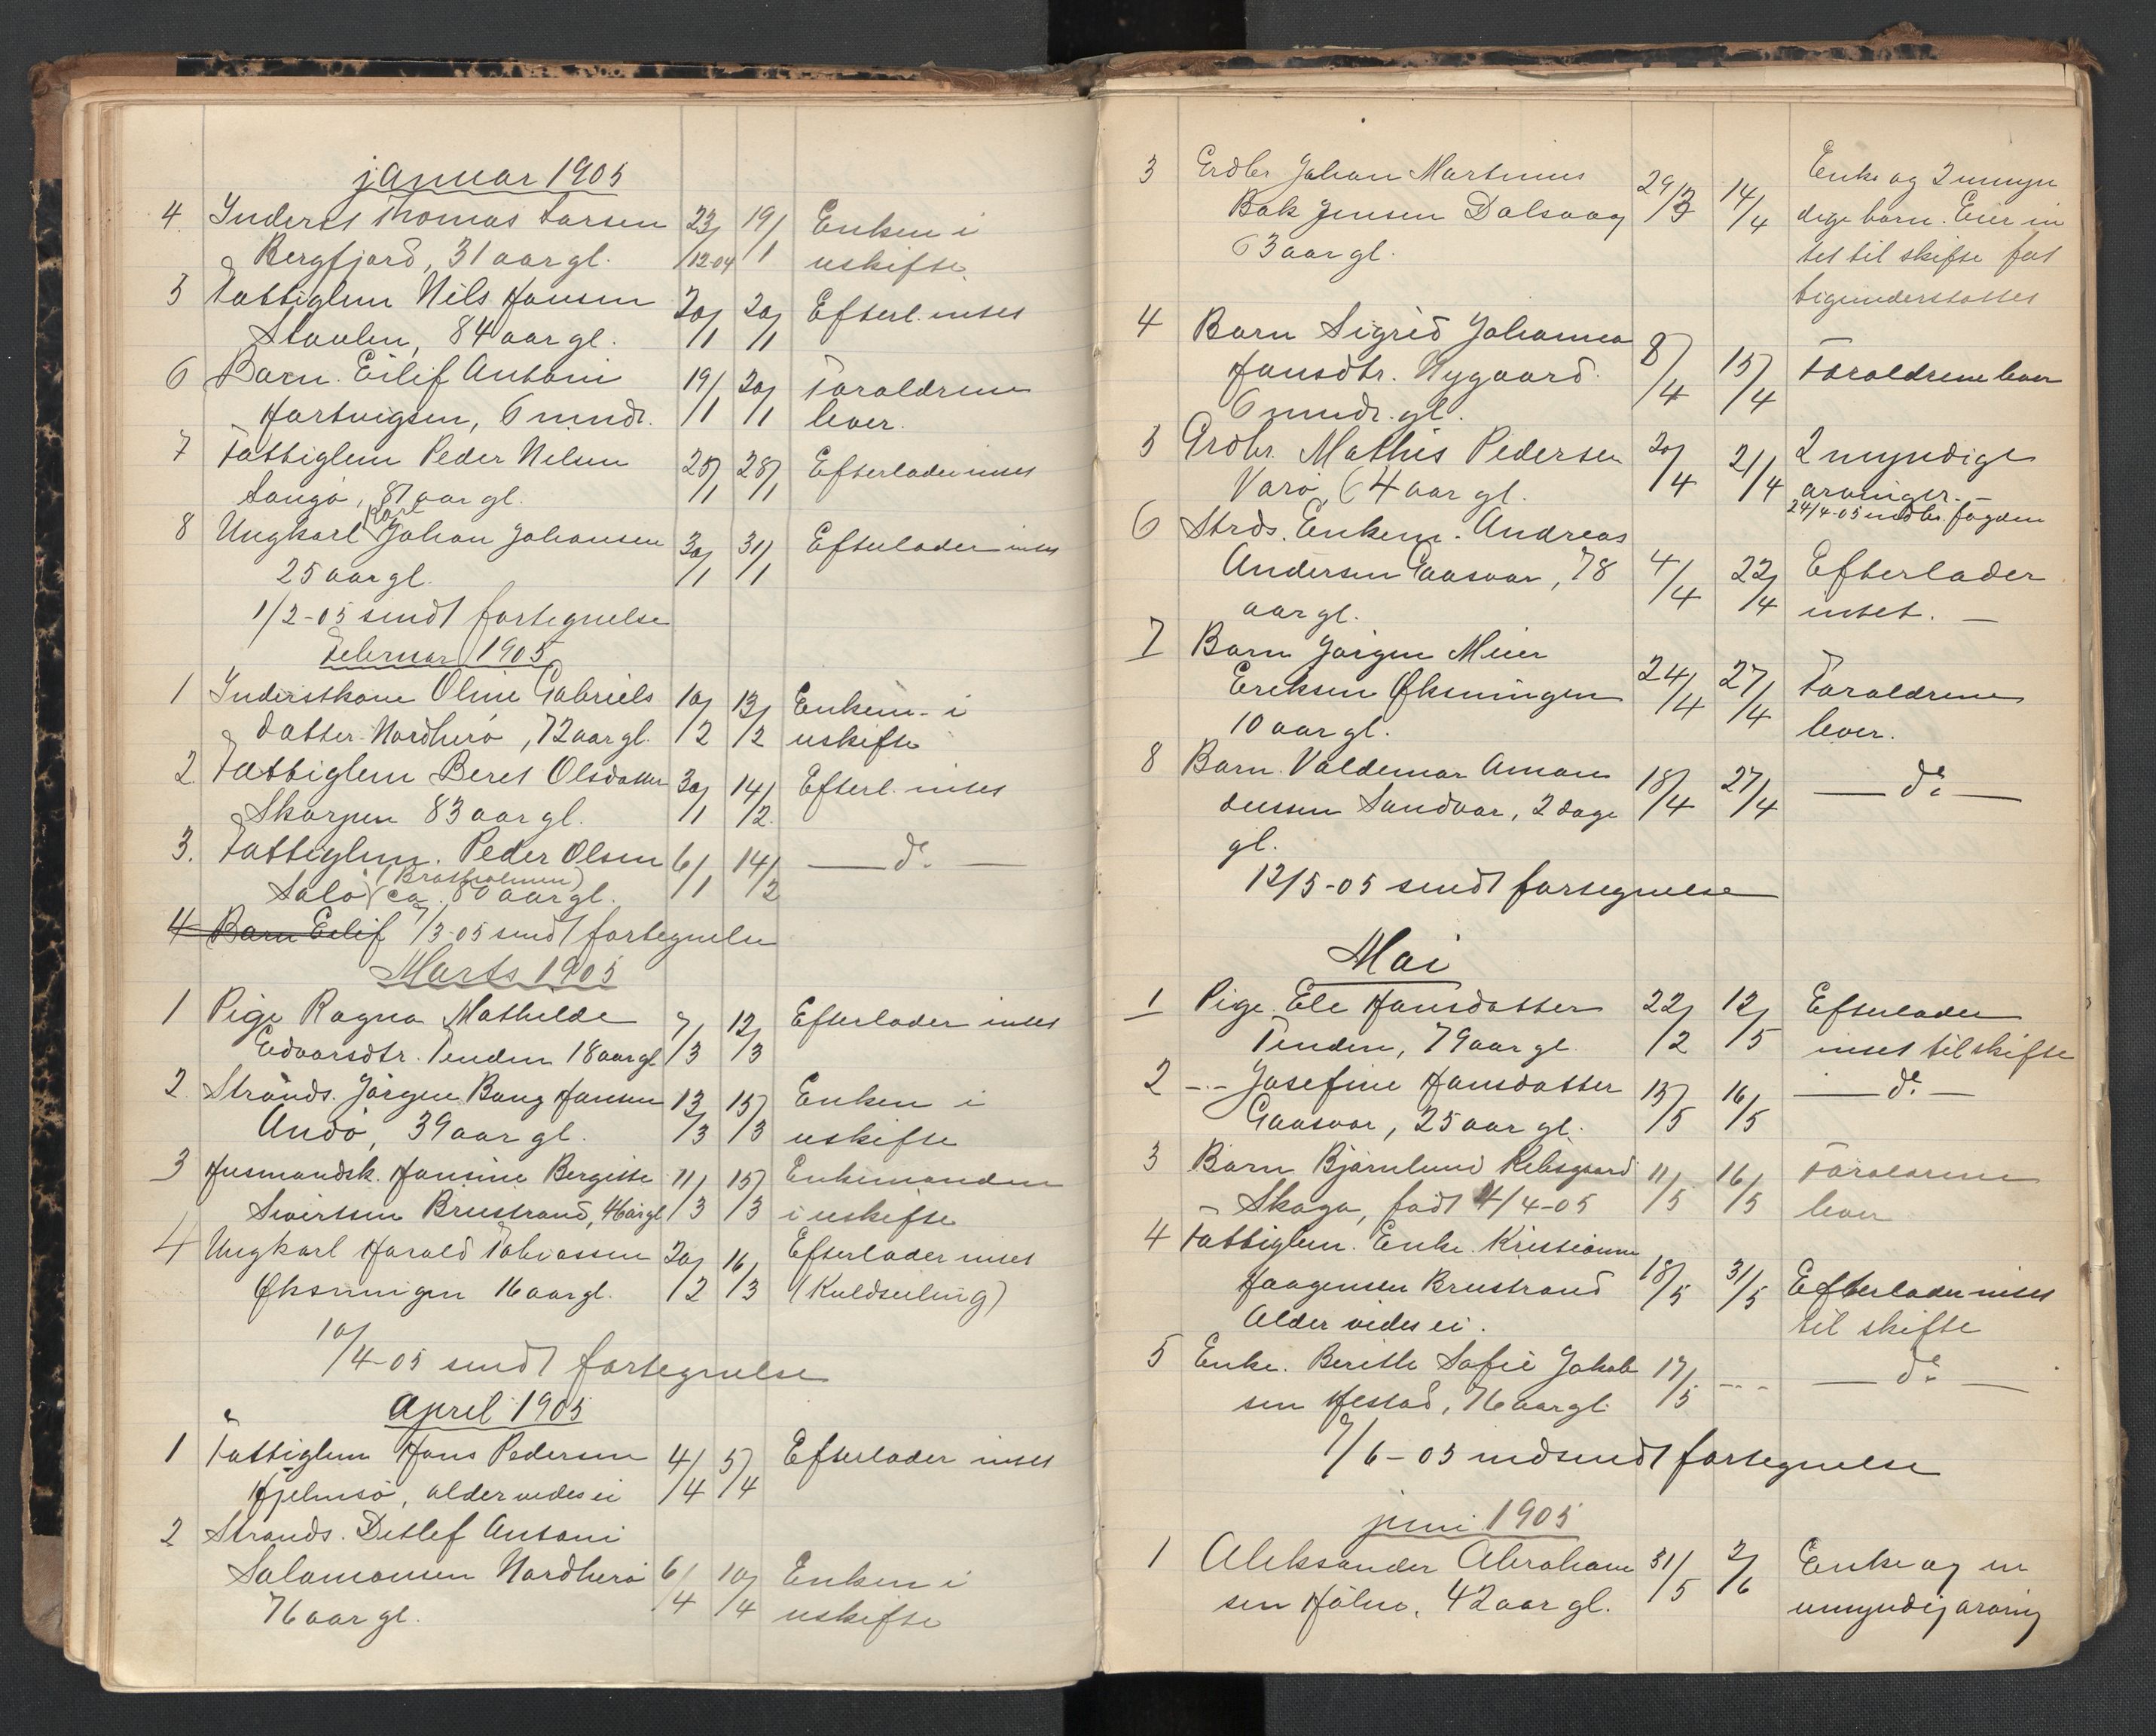 januar 1905
4. Inderst Thomas Larsen 23/12-04 19/1 Enken i
Bergfjord, 31 aar gl. uskifte
5 Fattiglem Nils Hansen 20/1 20/1 Efterl. intet
Staulen, 84 aar gl.
6 Barn. Eilif Antoni 19/1 20/1 Forældrene
Hartvigsen, 6 mndr. lever.
7 Fattiglem Peder Nilsen 28/1 Efterlader intet
Sougø, 87 aar gl.
8 Ungkarl Karl Johan Johansen 30/1 31/1 Efterlader intet
25 aar gl.
1/2-05 sendt fortegnelse
Februar 1905
1 Inderstkone Oline Gabriels 10/2 13/2 Enkem. i
datter Nordherø, 72 aar gl. uskifte
2 Fattiglem Beret Olsdatter 30/1 14/2 Efterl. intet
Skarpen 83 aar gl.
3. Fattiglem. Peder Olsen 6/1 14/2 — do —
(Bratholmen)
Salø ca. 80 aar gl.
4 Barn Eilif 7/3-05 sendt fortegnelse
Marts 1905
1 Pige Ragna Mathilde 7/3 12/3 Efterlader intet
Edvarsdtr. Tenden 18 aar gl
2 Strands. Jørgen Bang Hansen 13/3 15/3 Enken i
Andø, 39 aar gl. uskifte
3 Husmandsk. Hansine Bergitte 11/3 15/3 Enkemanden
Sivertsen Breistrand, 46 aar gl i uskifte
4 Ungkarl Harald Tobiassen 20/2 16/3 Efterlader intet
Øksningen 16 aar gl. (Kuldseiling)
10/4-05 sendt fortegnelse
April 1905
1 Fattiglem Hans Pedersen 4/4 5/4 Efterlader intet
Hjelmsø, alder vides ei
2 Strands. Detlef Antoni
Salamonsen Nordherø 6/4 10/4 Enken i
76 aar gl. uskifte
3 Johan Martinus 29/3 14/4 Enke og 2 umyn
Bak Jensen Dalsvaag dige børn. Eier in
63 aar gl. tet til skifte fat
tigunderstøttet
4 Barn Sigrid Johanna 8/4 15/4 Forældrene lever
Hansdtr. Nygaard.
6 mndr. gl.
5 Grdbr. Mathis Pedersen 20/4 21/4 2 myndige
Varø, 64 aar gl. arvinger. -
24/4-05 indb. fogden
6 Strds. Enkem. Andreas
Andersen Gaasvær, 78 4/4 22/4 Efterlader
aar gl. intet. —
7 Barn Jørgen Meier
Eriksen Øksningen 24/4 27/4 Forældrene
10 aar gl. lever.
8 Barn. Valdemar Aman 18/4 27/4 — do —
dussen Sandvær, 2 dage
gl.
12/5-05 sendt fortegnelse
Mai
1 Pige. Ele Hansdatter 22/2 12/5 Efterlader
Tenden, 79 aar gl. intet til skifte
2 -.- Josefine Hansdatter 13/5 16/5 — do —
Gaasvær, 25 aar gl.
3 Barn Bjarnlund 11/5 16/5 Forældrene
- Skaga, født 4/4-05 lever
4 Fattiglem. Enke. Kristianna
Haagensen Breistrand 18/5 31/5 Efterlader intet
Alder vides ei. til skifte
5 Enke. Berithe Sofie Jakob 17/5 -- - — do —
sen Hestad, 76 aar gl.
7/6-05 indsendt fortegnelse
juni 1905
1 Aleksander Abraham 31/5 2/6 Enke og en
sen Hølno, 42 aar gl. umyndig arving